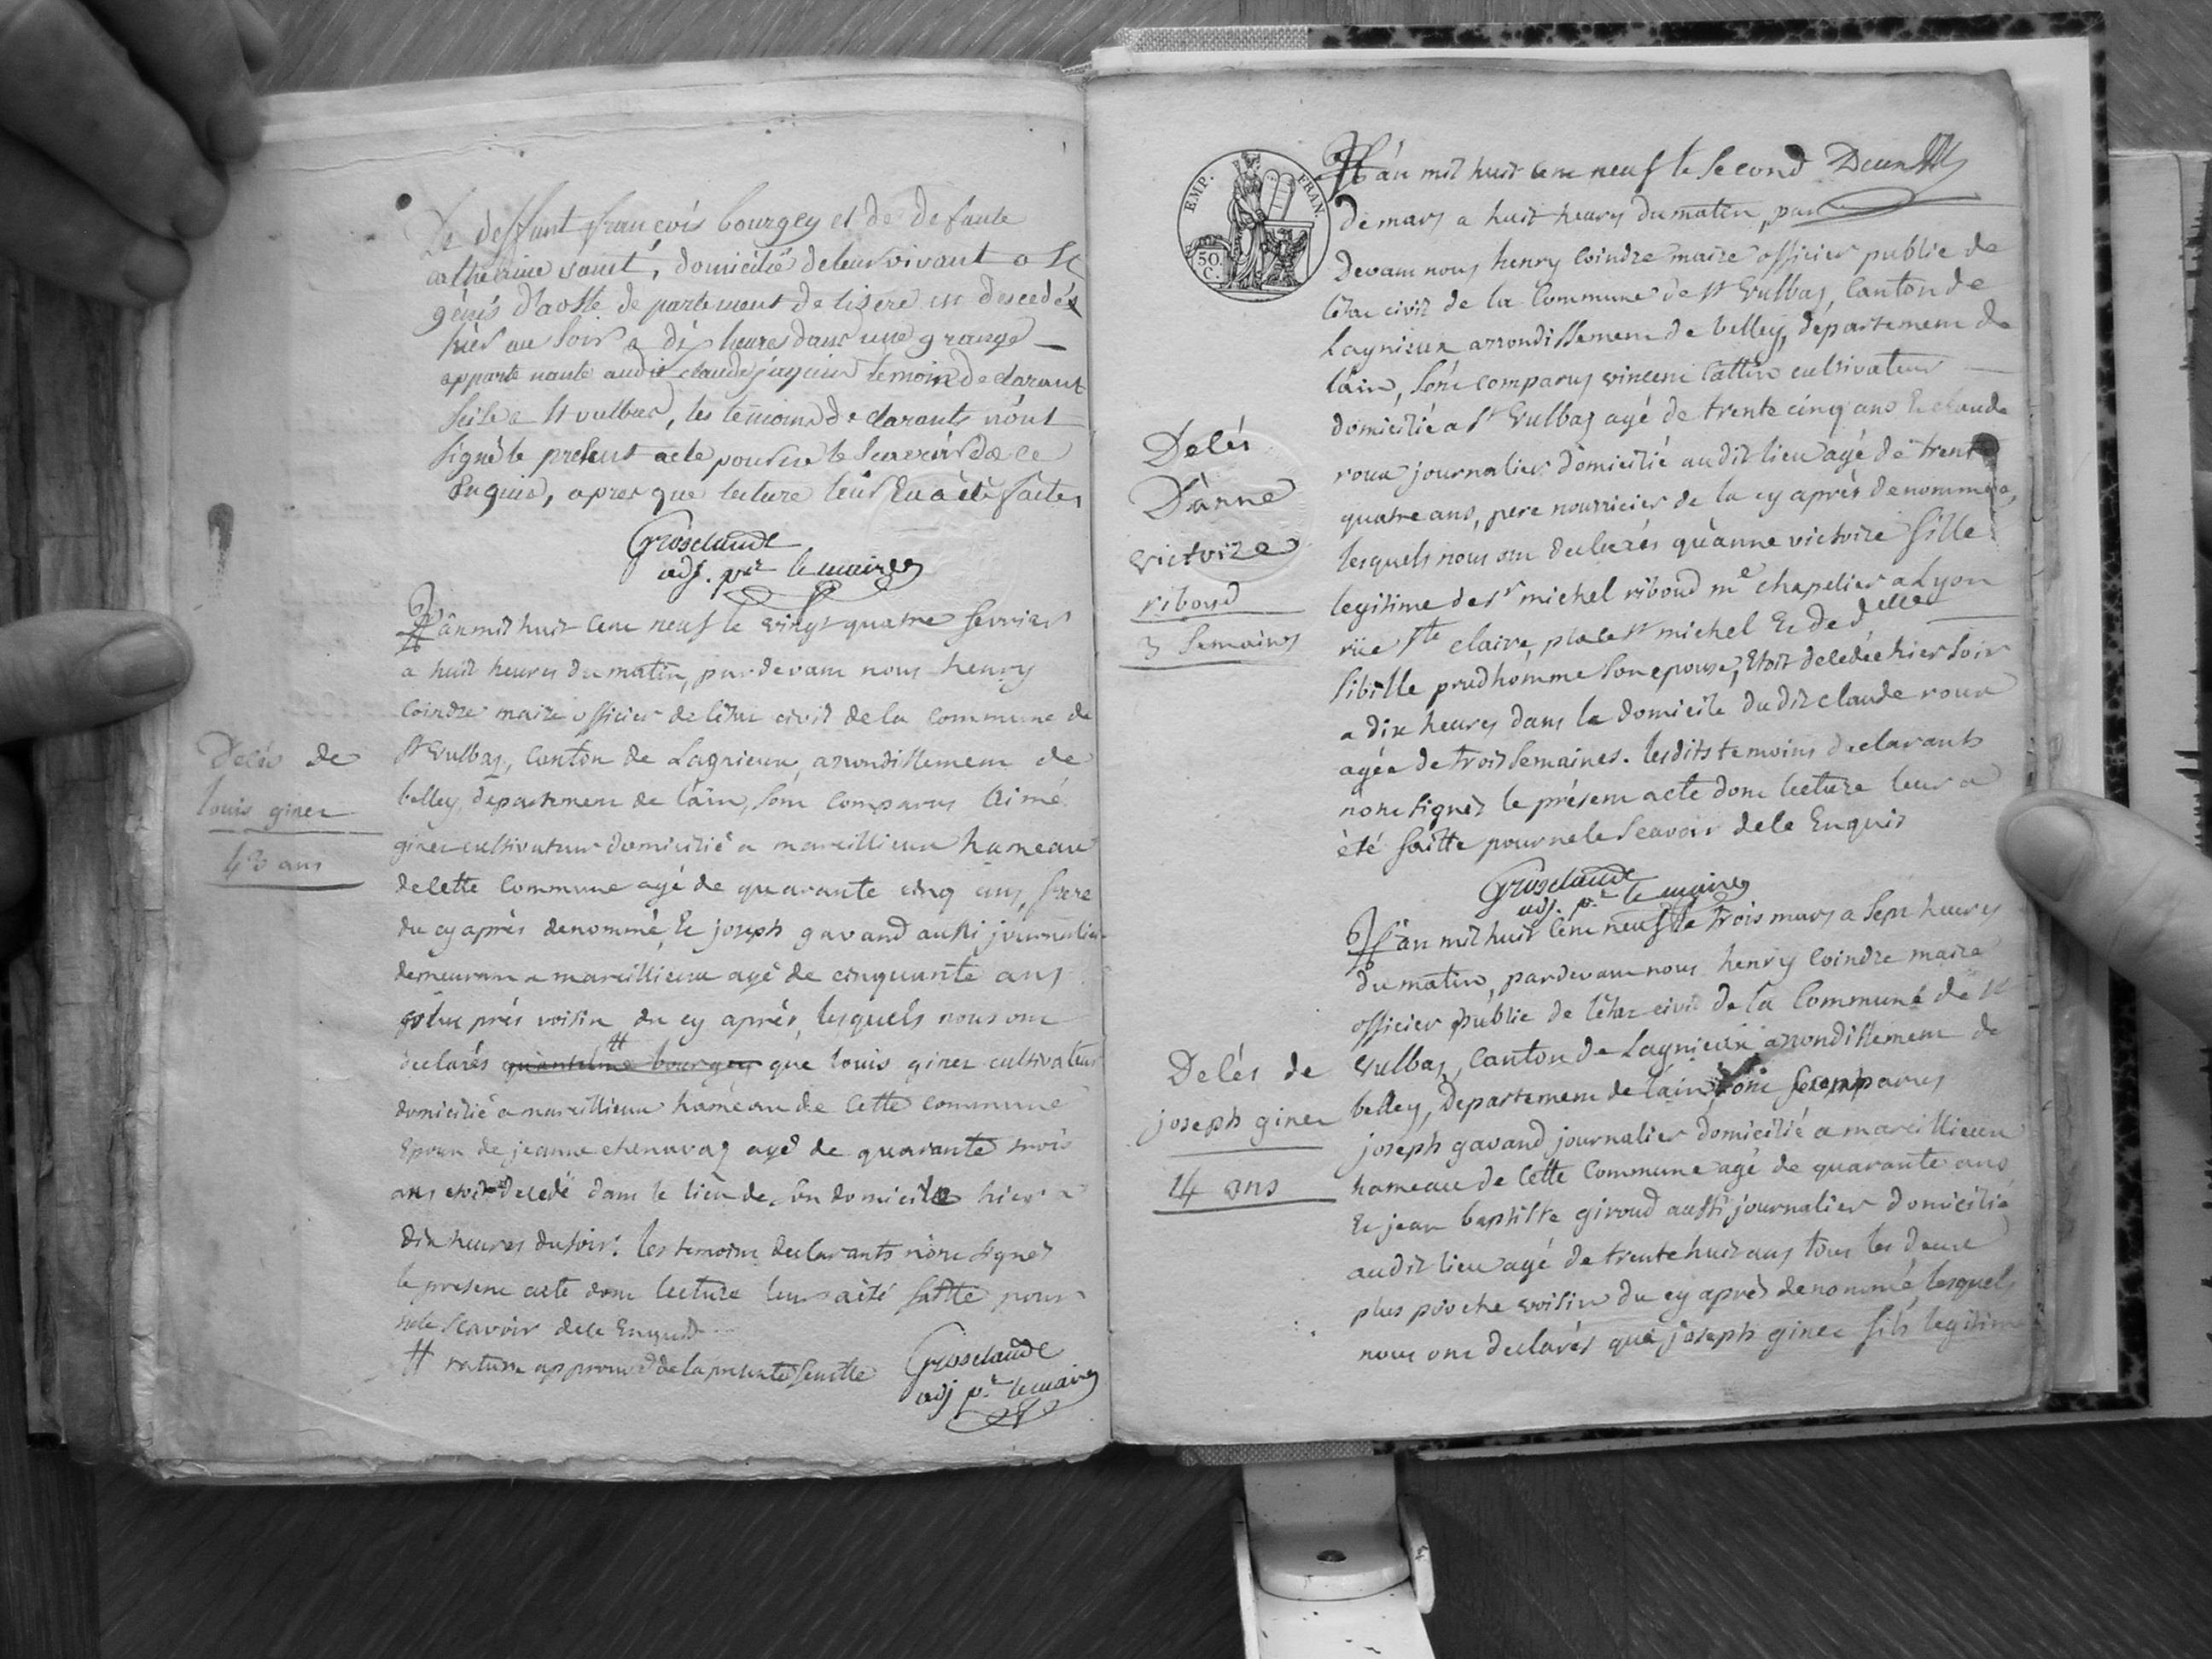 De deffunt francois bourgey et de defunte
catherine vanet, domicilié de leur vivant a St
génis d'aoste departement de lisere est descedés
hier au Soir a dix heures dans une grange
appartenante audit claude temoin declarant
Scise a St vulbas, les temoins declarants n'ont
Signé le present acte pour ne le Scavoir de ce
Enquis, apres que lecture leur En a été faites
Grosclaude
adj. pr le maire
L'an mil huit cent neuf le vingt quatre fevrier
a huit heures du matin, pardevant nous henry
Coindre maire officier de l'état civil de la commune de
St Vulbas, Canton de Lagnieux, arrondissement de
belley, departement de l'ain, sont comparus Aimé
giner cultivateur domicilié a marcillieux hameau
de cette Commune agé de quarante cinq ans, frere
du cy aprés denommé, Et joseph gavand aussi journalier
demeurant a marcillieux agé de cinquante ans
plus prés voisin du cy aprés, lesquels nous ont
declarés qu'anselme bourgey que louis giner cultivateur
domicilié a marcillieux hameau de cette commune
Epoux de jeanne chenavaz agé de quarante trois
ans etoit decedé dans le lieu de son domicile hier a
dix heures du soir. les temoins declarants n'ont signés
le present acte dont lecture leur a été faitte pour
ne le scavoir de ce Enquis
# rature approuvé de la presente feuille
Grosclaude
adj pr le maire
Decés de
louis giner
43 ans
EMP. FRAN.
50 C.
L'an mil huit cent neuf le Second
de mars a huit heures du matin, par
Devant nous henry Coindre maire officier public de
l'état civil de la Commune de St Vulbas, Canton de
Lagnieux arrondissement de belley, département de
l'ain, sont comparus vincent Cattin cultivateur
domicilié a St Vulbas agé de trente cinq ans Et claude
roux journalier domicilié audit lieu agé de trente
quatre ans, pere nourricier de la cy aprés denommée,
lesquels nous ont declarés qu'anne victoire fille
legitime de Sr michel riboud me chapelier a Lyon
rüe Ste claire, place St michel Et de delle
Sibille prudhomme son epouse, Etoit decedée hier soir
a dix heures dans le domicile dudit claude roux
agée de trois semaines. lesdits temoins declarants
n'ont signés le présent acte dont lecture leur a
été faitte pour ne le Scavoir de ce Enquis
Grosclaude
adj. pr le maire
Decés
D'anne
victoire
riboud
3 semaines
L'an mil huit cent neuf le trois mars a sept heures
du matin, pardevant nous henry Coindre maire
officier public de l'état civil de la Commune de St
Vulbas, Canton de Lagnieux arrondissement de
belley, Departement de l'ain, sont comparus
joseph gavand journalier domicilié a marcillieux
hameau de cette Commune agé de quarante ans
Et jean baptiste giroud aussi journalier domicilié
audit lieu agé de trente huit ans tous les deux
plus proche voisin du cy aprés denommé, lesquels
nous ont declarés que joseph giner fils legitime
Decés de
joseph giner
14 ans